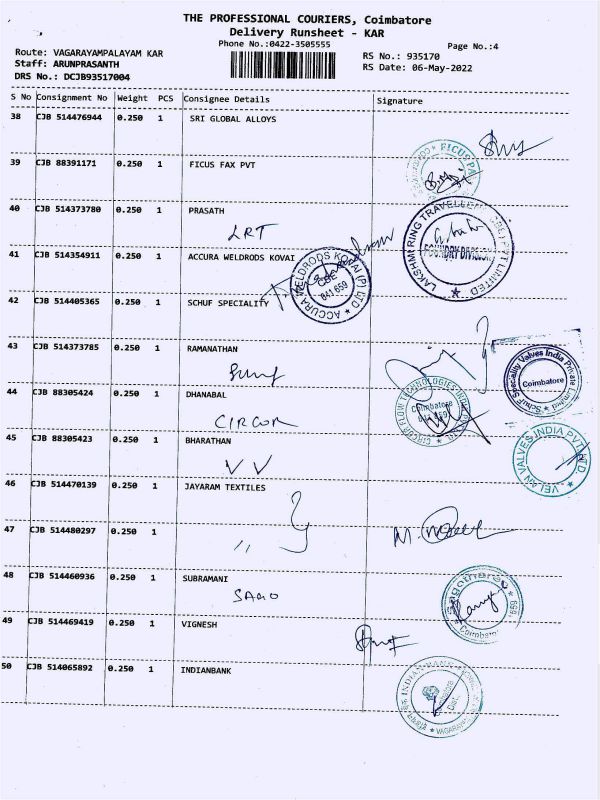 THE PROFESSIONAL COURIERS, Coimbatore
Delivery Runsheet - KAR
Phone No.:0422-3505555
Page No.:4
Route: VAGARAYAMPALAYAM KAR
RS No.: 935170
Staff: ARUNPRASANTH
RS Date: 06-May-2022
DRS No.: DCJB93517004
S No Consignment No Weight PCS Consignee Details Signature
38 CJB 514476944 0.250 1 SRI GLOBAL ALLOYS
39 CJB 88391171 0.250 1 FICUS FAX PVT
FICUS
40 CJB 514373780 0.250 1 PRASATH
LRT
LAKSHMI RING TRAVELLERS (CBE) PVT LIMITED
FOUNDRY DIVISION
41 CJB 514354911 0.250 1 ACCURA WELDRODS KOVAI
ACCURA WELDRODS KOVAI (P) LTD
CBE
641 659
42 CJB 514405365 0.250 1 SCHUF SPECIALITY
43 CJB 514373785 0.250 1 RAMANATHAN
Schuf Speciality Valves India Private Limited
Coimbatore
44 CJB 88305424 0.250 1 DHANABAL
CIRCOR
CIRCOR FLOW TECHNOLOGIES INDIA
Coimbatore
45 CJB 88305423 0.250 1 BHARATHAN
V V
VELAN VALVES INDIA PVT. LTD.
46 CJB 514470139 0.250 1 JAYARAM TEXTILES
47 CJB 514480297 0.250 1
,,
48 CJB 514460936 0.250 1 SUBRAMANI
SAGO
Coimbatore
659
49 CJB 514469419 0.250 1 VIGNESH
50 CJB 514065892 0.250 1 INDIANBANK
INDIAN BANK